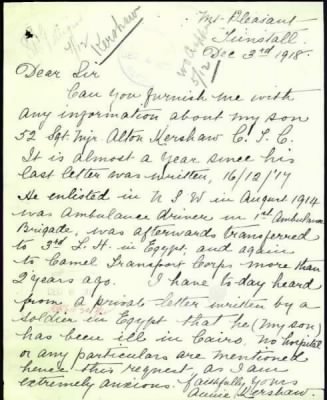 Kershaw
Mt Pleasant
Tunstall.
Dec 3rd 1918.
Dear Sir
Can you furnish me with
any information about my son
52 Sgt. Mjr. Alton Kershaw C.T.C.
It is almost a year since his
last letter was written, 16/12/17
He enlisted in N S W in August 1914
was Ambulance driver in 1st Ambulance
Brigade, was afterwards transferred
to 3rd L. H. in Egypt, and again
to Camel Transport Corps more than
2 years ago. I have to day heard
from a private letter written by a
soldier in Egypt that he (my son)
has been ill in Cairo, no hospital
or any particulars are mentioned
hence this request, as I am
extremely anxious. faithfully yours
Annie Kershaw.